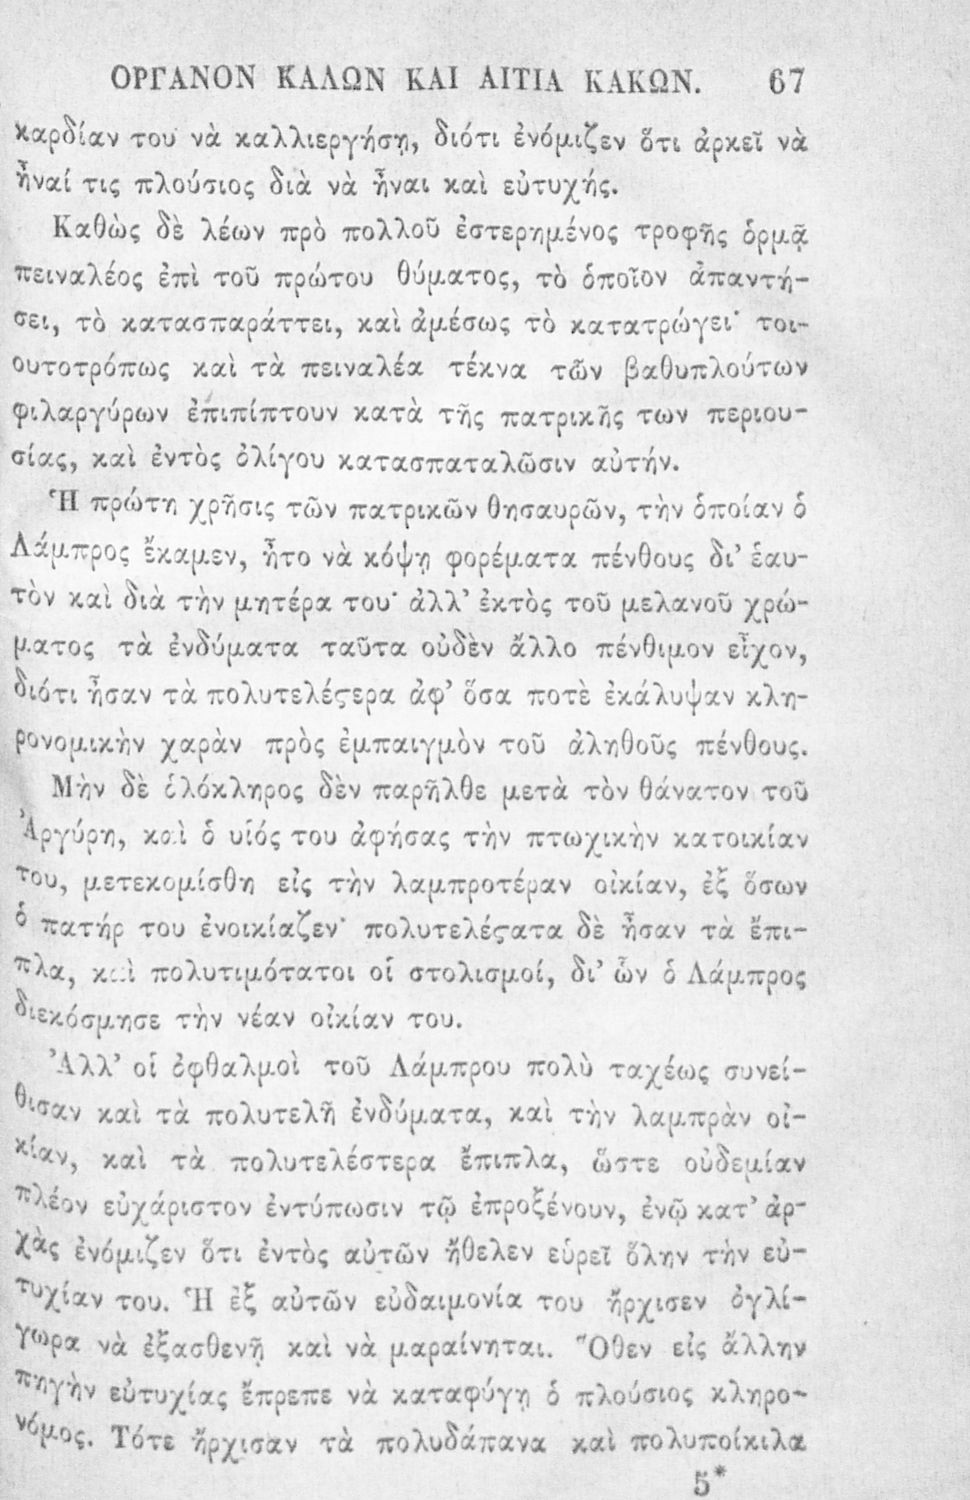 ΟΡΓΑΝΟΝ ΚΑΛΩΝ ΚΑΙ ΑΙΤΙΑ ΚΑΚΩΝ. 67
καρδίαν του νὰ καλλιεργήσῃ, διότι ἐνόμιζεν ὅτι ἀρκεῖ νὰ
ἦναί τις πλούσιος διὰ νὰ ἦναι καὶ εὐτυχής.
Καθὼς δὲ λέων πρὸ πολλοῦ ἐστερημένος τροφῆς ὁρμᾷ
πειναλέος ἐπὶ τοῦ πρώτου θύματος, τὸ ὁποῖον ἀπαντή-
σει, τὸ κατασπαράττει, καὶ ἀμέσως τὸ κατατρώγει· τοι-
ουτοτρόπως καὶ τὰ πειναλέα τέκνα τῶν βαθυπλούτων
φιλαργύρων ἐπιπίπτουν κατὰ τῆς πατρικῆς των περιου-
σίας, καὶ ἐντὸς ὀλίγου κατασπαταλῶσιν αὐτήν.
Ἡ πρώτη χρῆσις τῶν πατρικῶν θησαυρῶν, τὴν ὁποίαν ὁ
Λάμπρος ἔκαμεν, ἦτο νὰ κόψῃ φορέματα πένθους δι’ ἑαυ-
τὸν καὶ διὰ τὴν μητέρα του· ἀλλ’ ἐκτὸς τοῦ μελανοῦ χρώ-
ματος τὰ ἐνδύματα ταῦτα οὐδὲν ἄλλο πένθιμον εἶχον,
διότι ἦσαν τὰ πολυτελέϛερα ἀφ’ ὅσα ποτὲ ἐκάλυψαν κλη-
ρονομικὴν χαρὰν πρὸς ἐμπαιγμὸν τοῦ ἀληθοῦς πένθους.
Μὴν δὲ ὁλόκληρος δὲν παρῆλθε μετὰ τὸν θάνατον τοῦ
Ἀργύρη, καὶ ὁ υἱός του ἀφήσας τὴν πτωχικὴν κατοικίαν
του, μετεκομίσθη εἰς τὴν λαμπροτέραν οἰκίαν, ἐξ ὅσων
ὁ πατήρ του ἐνοικίαζεν· πολυτελέϛατα δὲ ἦσαν τὰ ἔπι-
πλα, καὶ πολυτιμότατοι οἱ στολισμοί, δι’ ὧν ὁ Λάμπρος
διεκόσμησε τὴν νέαν οἰκίαν του.
Ἀλλ’ οἱ ὀφθαλμοὶ τοῦ Λάμπρου πολὺ ταχέως συνεί-
θισαν καὶ τὰ πολυτελῆ ἐνδύματα, καὶ τὴν λαμπρὰν οἰ-
κίαν, καὶ τὰ πολυτελέστερα ἔπιπλα, ὥστε οὐδεμίαν
πλέον εὐχάριστον ἐντύπωσιν τῷ ἐπροξένουν, ἐνῷ κατ’ ἀρ-
χὰς ἐνόμιζεν ὅτι ἐντὸς αὐτῶν ἤθελεν εὑρεῖ ὅλην τὴν εὐ-
τυχίαν του. Ἡ ἐξ αὐτῶν εὐδαιμονία του ἤρχισεν ὀγλί-
γωρα νὰ ἐξασθενῇ καὶ νὰ μαραίνηται. Ὅθεν εἰς ἄλλην
πηγὴν εὐτυχίας ἔπρεπε νὰ καταφύγῃ ὁ πλούσιος κληρο-
νόμος. Τότε ἤρχισαν τὰ πολυδάπανα καὶ πολυποίκιλα
5*